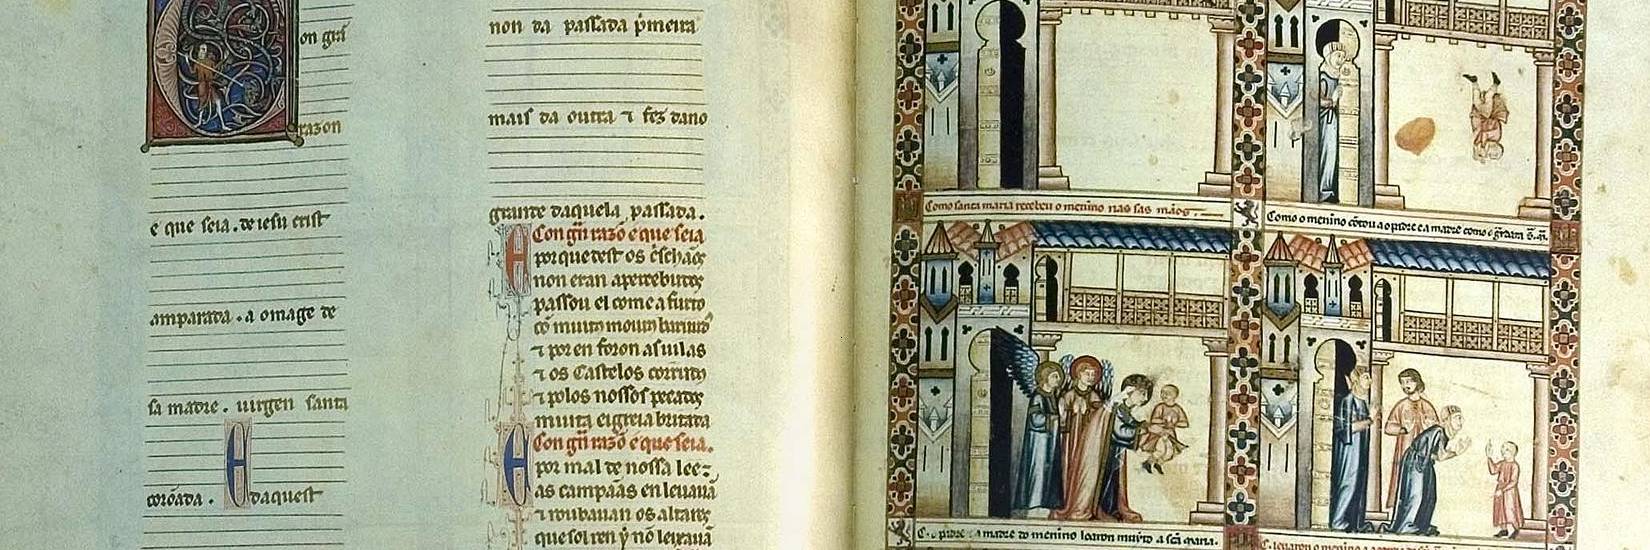 on grã
razon
e que seia. de iesu crist
amparada. a omage de
sa madre. uirgen santa
corõada. E daquest
non da passada p̃meira
mais da outra ⁊ fez dano
grande daquela passada.
Con grã razõ e que seia
porque dest os
non eran aperceb
passou el come a furto
cõ muito mour barund
⁊ por en foron as uilas
⁊ os Castelos
⁊ polos nossos pecados
muita eigreia britada
Con grã razõ e que seia.
E por mal de nossa lee
as campãas en leuauã
⁊ roubauan os altares
que sol ren y nõ leixauã
Como santa maria recebeu o menino nas sas mãos.
Como o menino cõtou a o padre e a madre como
C. o padre e a madre do menino loaron muyto a scã maria.
C. leuaron o menino a